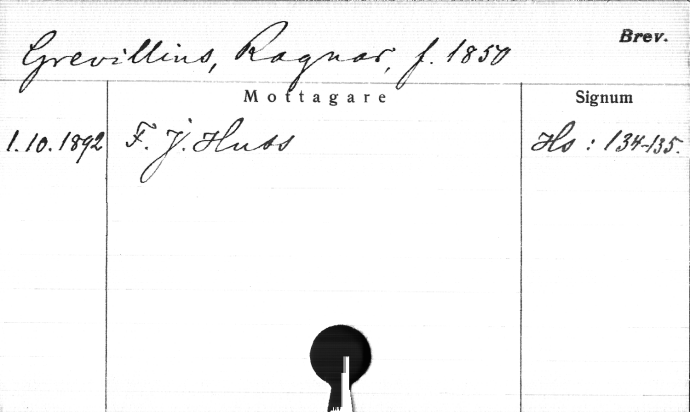 Brev.
Grevillius, Ragnar, f. 1850
Mottagare Signum
1.10.1892 F. J. Huss Hs : 134-135.